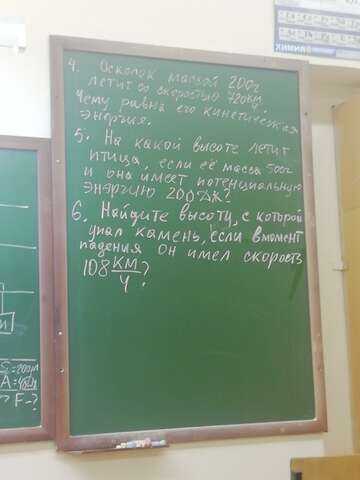 ХИМИЯ
4. Осколок массой 200г
летит со скоростью 720км/ч
Чему равна его кинетическая
энергия.
5. На какой высоте летит
птица, если её масса 500г
и она имеет потенциальную
энергию 200Дж?
6. Найдите высоту, с которой
упал камень, если вмомент
падения он имел скорость
108 км/ч?
F-?